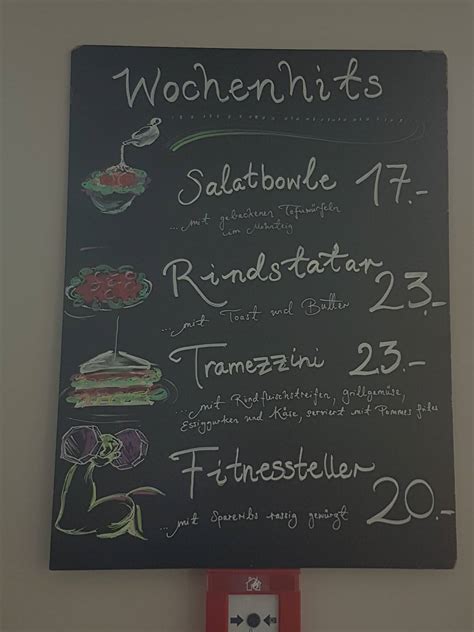 Wochenhits
Salatbowle 17.-
...mit gebackenen Tofuwürfeln
im Mohnteig
Rindstatar 23.-
...mit Toast und Butter
Tramezzini 23.-
...mit Rindfleischstreifen, Grillgemüse,
Essiggurken und Käse, serviert mit Pommes frites
Fitnessteller 20.-
...mit Spareribs rassig gewürzt